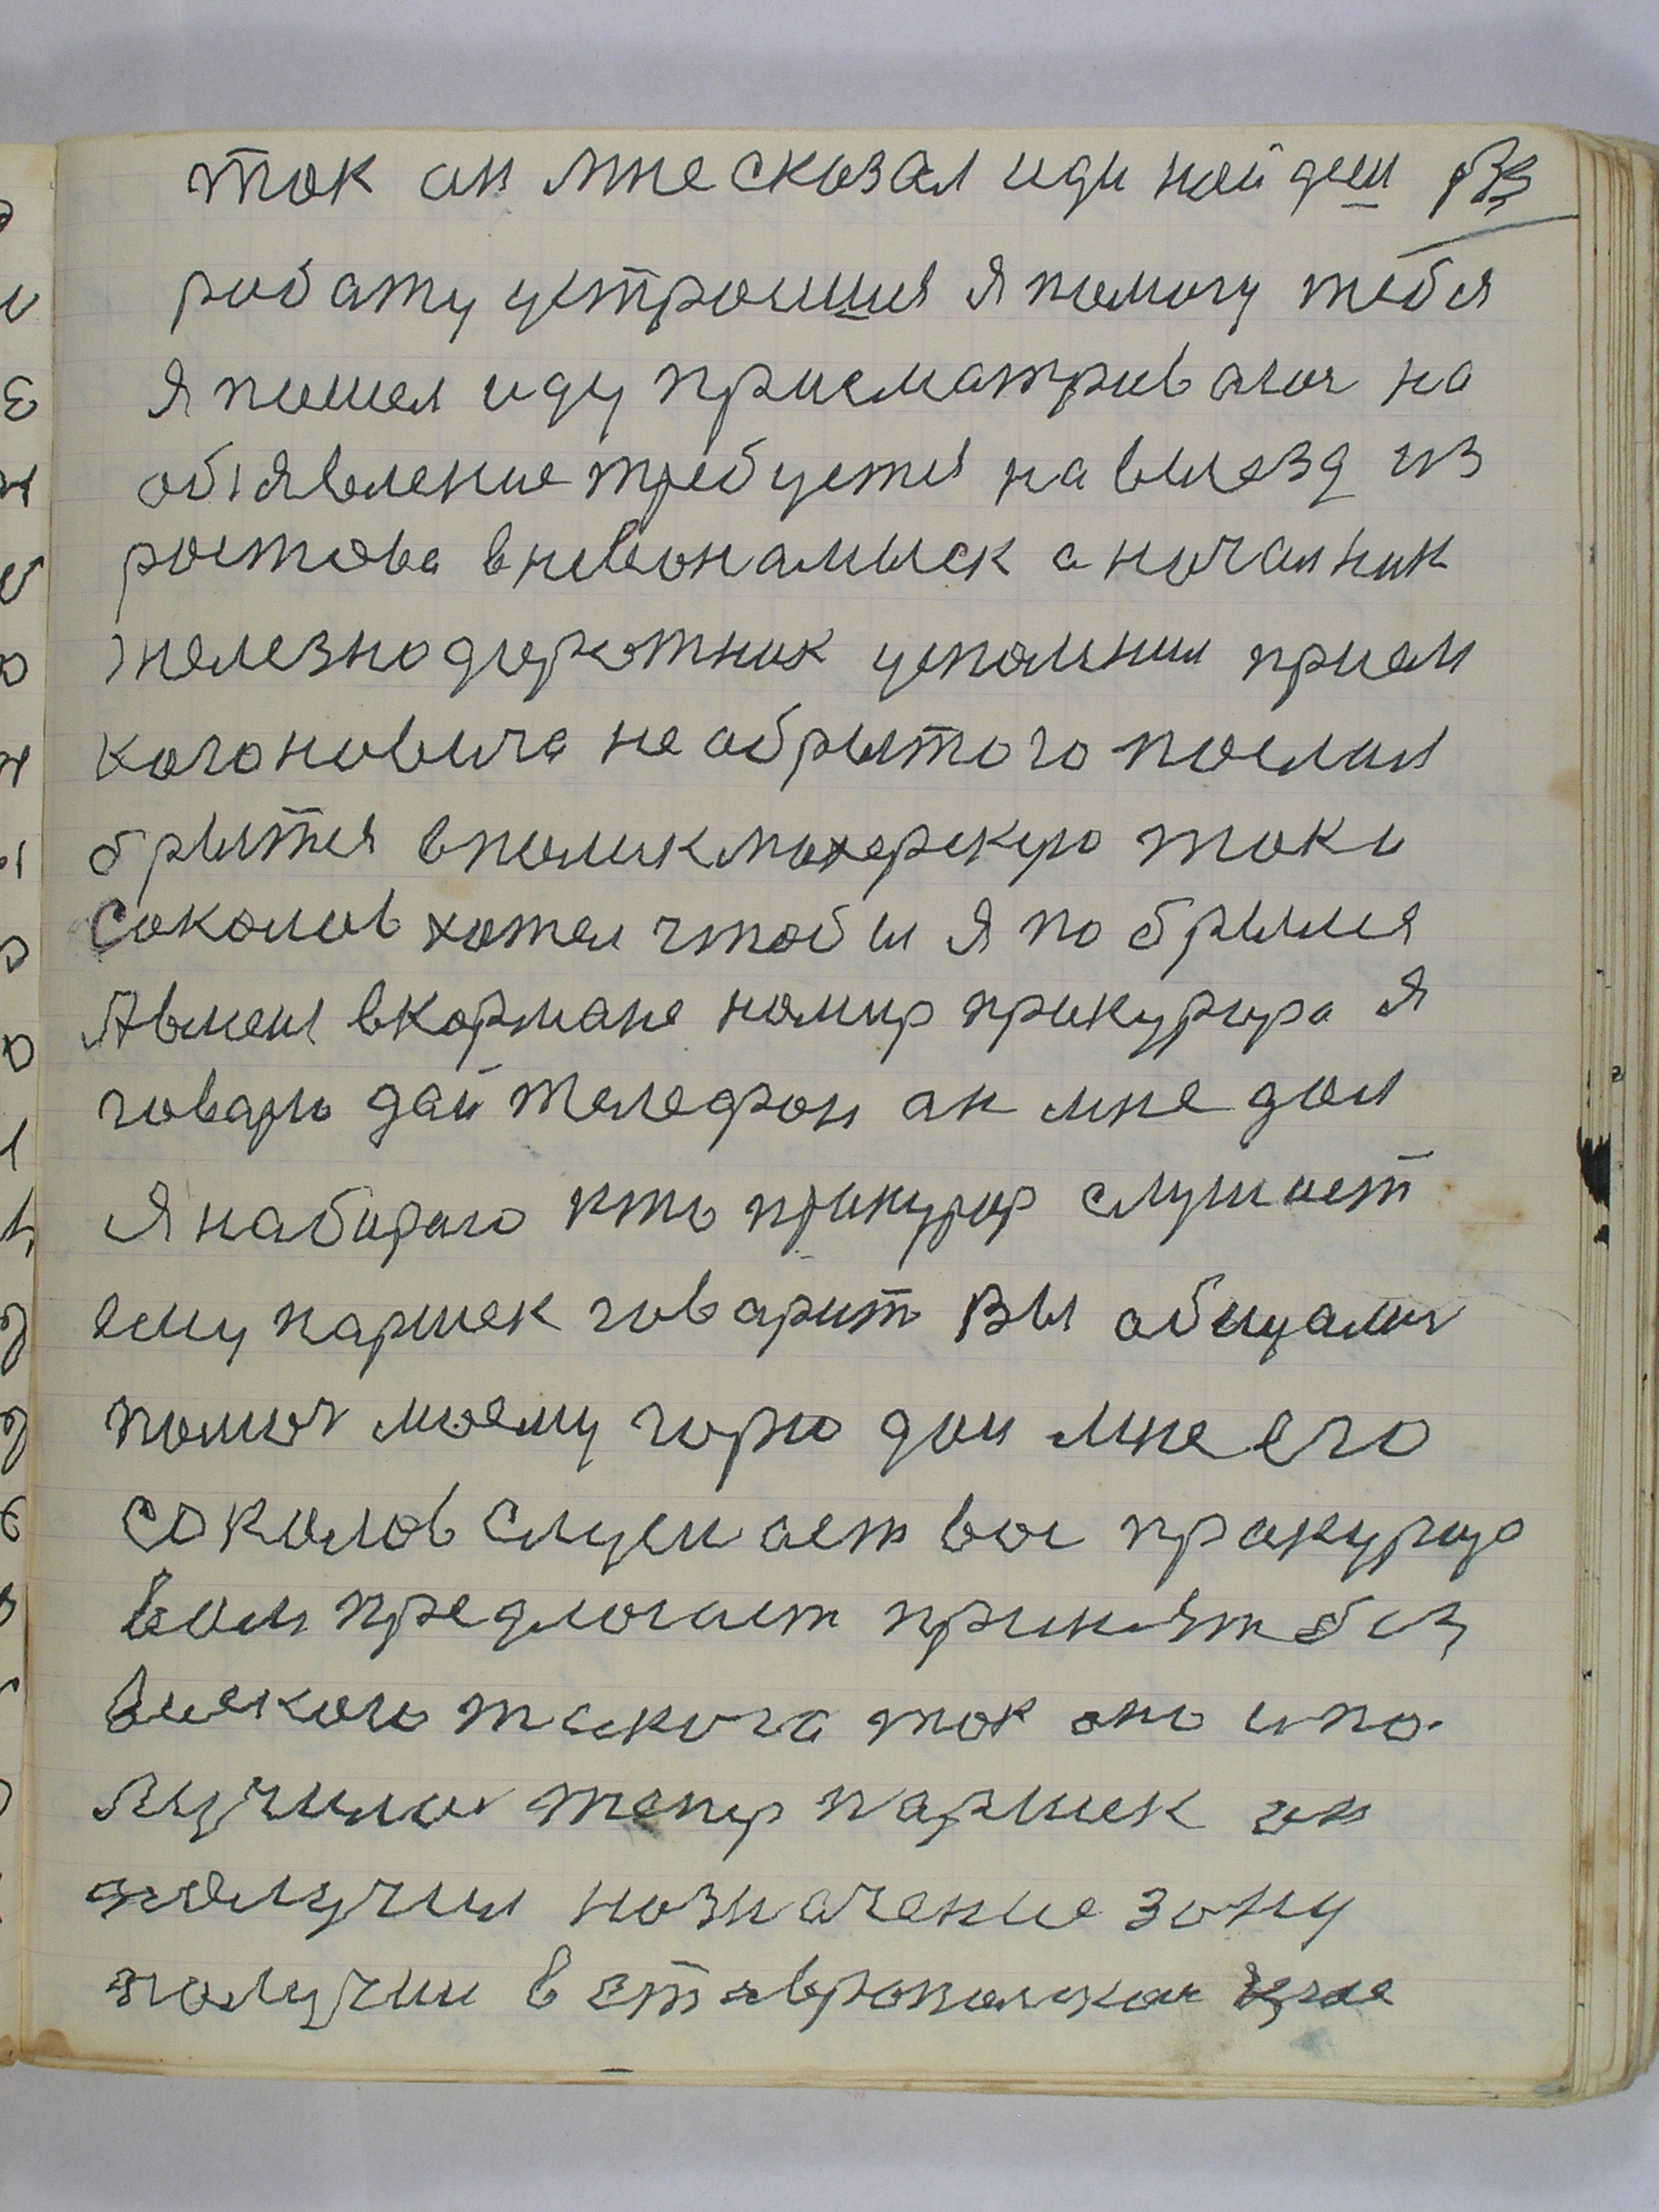 ток он мне сказал иди найдеш
работу устроишся я помогу тебя
я пошел иду присматриваюс на
обiявление требуется на выезд из
ростова в невонамыск а началник
железнодорожник успомнил прием
когоновича не обрытого послал
брытся в поликмахерскую токи
Соколов хотел чтобы я побрылся
Я вмеил в кормане номир прикурора я
говарю дай телефон ан мне дал
я набираю кто прикурор слушает
ему паршек говарит вы обищалис
помоч моему горю дай мне его
соколов слушает вас пракурор
вам предлогает принят без
всякого такога ток оно и по-
лучилос тепер паршек он
получил нозначение зону
получил в ставрополскам крае